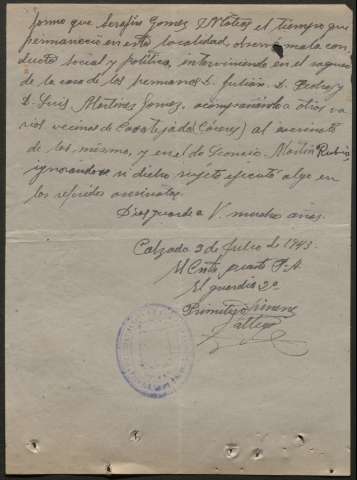 formo que Serafin Gomez Mateos el tiempo que
permanecio en esta localidad, observó mala con
ducta social y politica, interviniendo en el saqueo
de la casa de los hermanos D. Julián, D. Pedro y
D. Luis Martinez Gomez, acompañando a otros va
rios vecinos de Casatejada (Cáceres) al asesinato
de los mismos, y en el de Leoncio Martin Rubio
ignorandose si dicho sujeto ejecutó algo en
los referidos asesinatos.
Dios guarde a V. muchos años.
Calzada 3 de Julio de 1943.
El Cmte. puesto P.A.
El guardia 2º
Primitivo Jimenez
Gallego